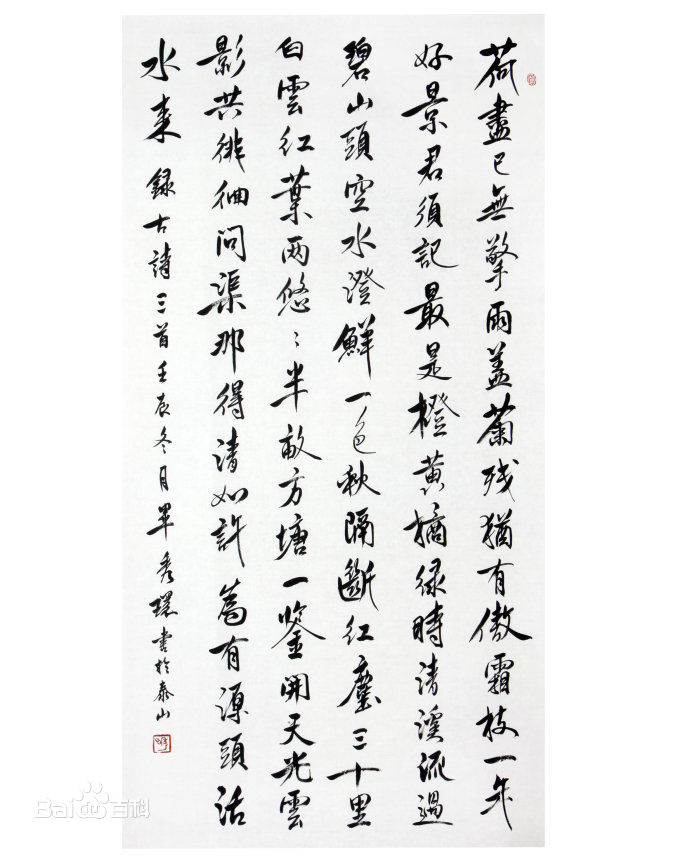 荷盡已無擎雨盖菊残猶有傲霜枝一年
好景君須記最是橙黄橘绿時清溪流過
碧山頭空水澄鮮一色秋隔斷红塵三十里
白雲红葉两悠〻半畝方塘一鑒開天光雲
影共徘徊問渠那得清如許為有源頭活
水来 録古詩三首壬辰冬月秀書於泰山
Bai百科